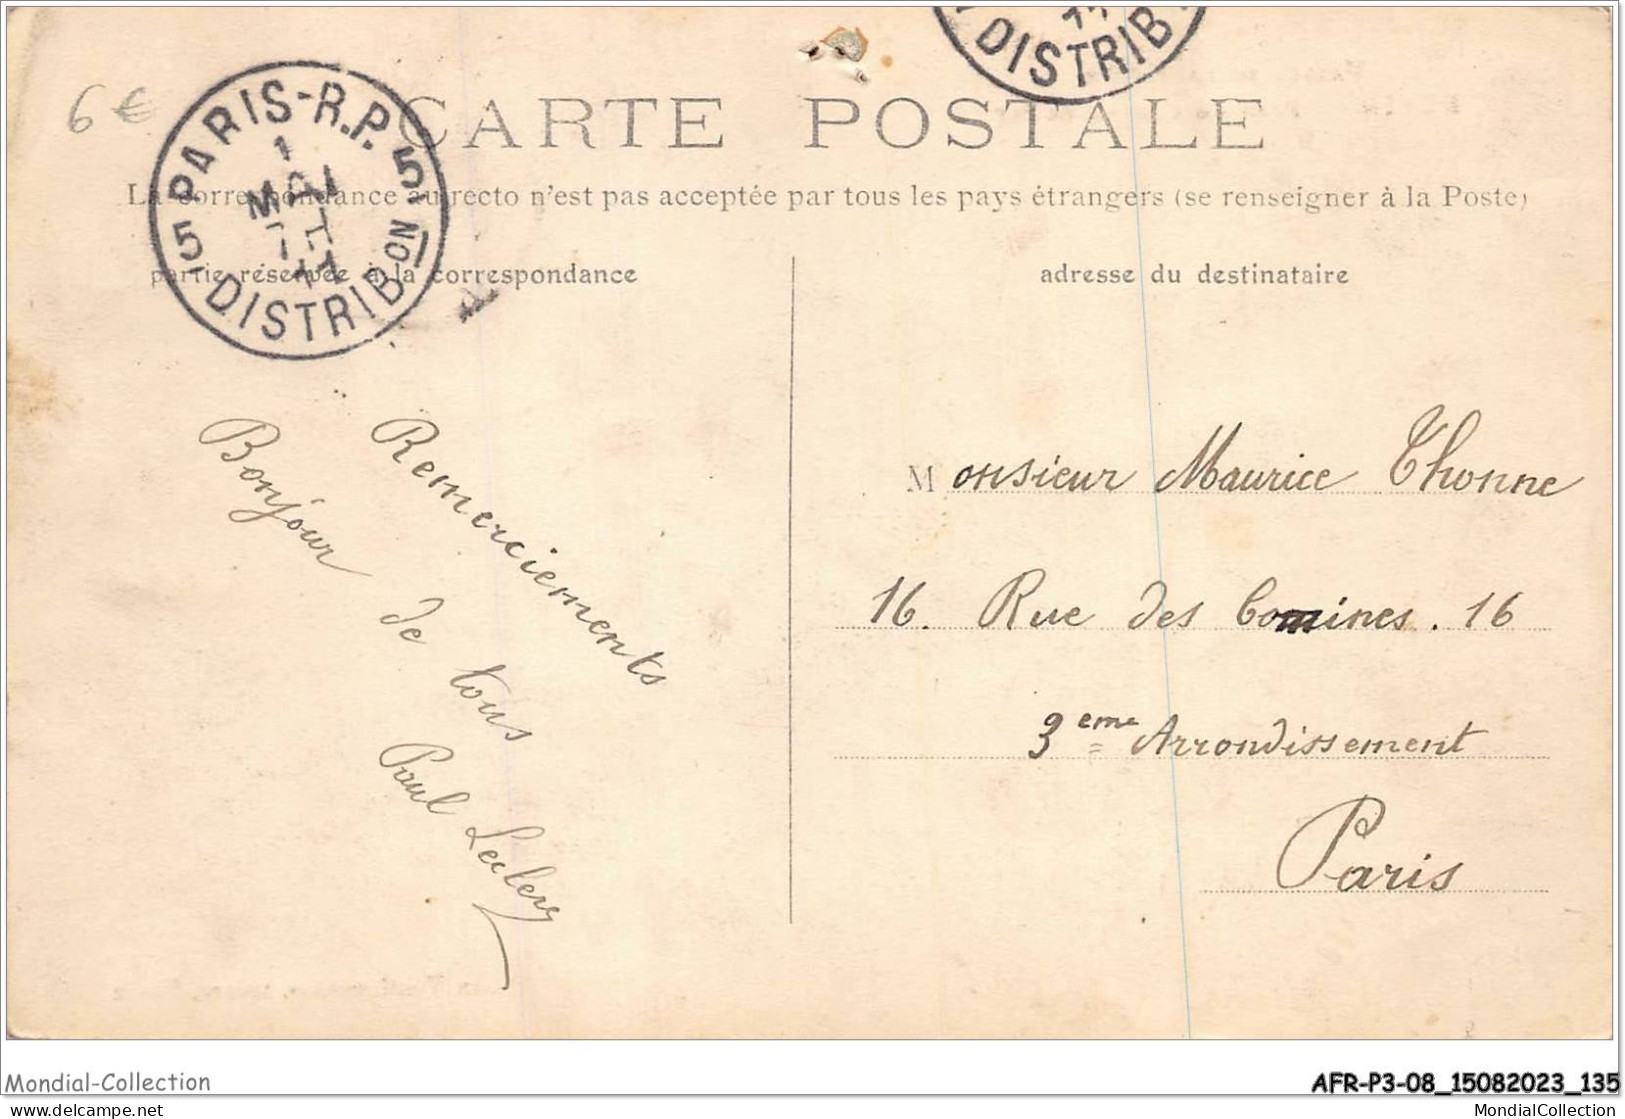 DISTRIB
6 €
PARIS-R.P.
5 5
1
MAI
DISTRIBON
CARTE POSTALE
La correspondance au recto n'est pas acceptée par tous les pays étrangers (se renseigner à la Poste)
partie réservée à la correspondance
adresse du destinataire
Remerciements
Bonjour de tous
Paul Leclerq
Monsieur Maurice Thonne
16. Rue des Comines. 16
3eme Arrondissement
Paris
Mondial-Collection
AFR-P3-08_15082023_135
delcampe.net
MondialCollection